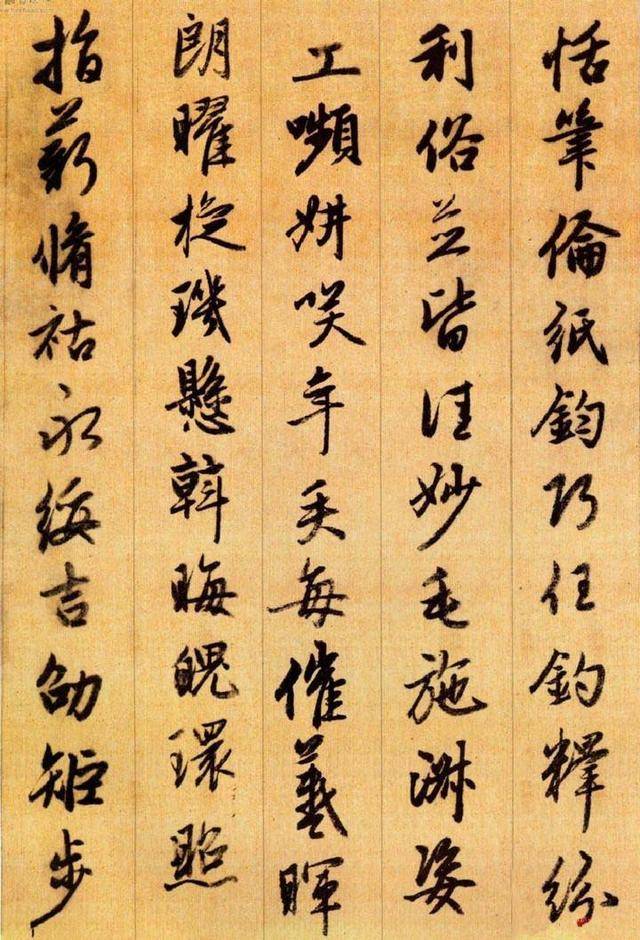 恬筆倫紙鈞巧任釣釋紛
利俗並皆佳妙毛施淑姿
工嚬妍咲年矢每催羲暉
朗曜琁璣懸斡晦魄環照
指薪脩祜永綏吉劭矩步